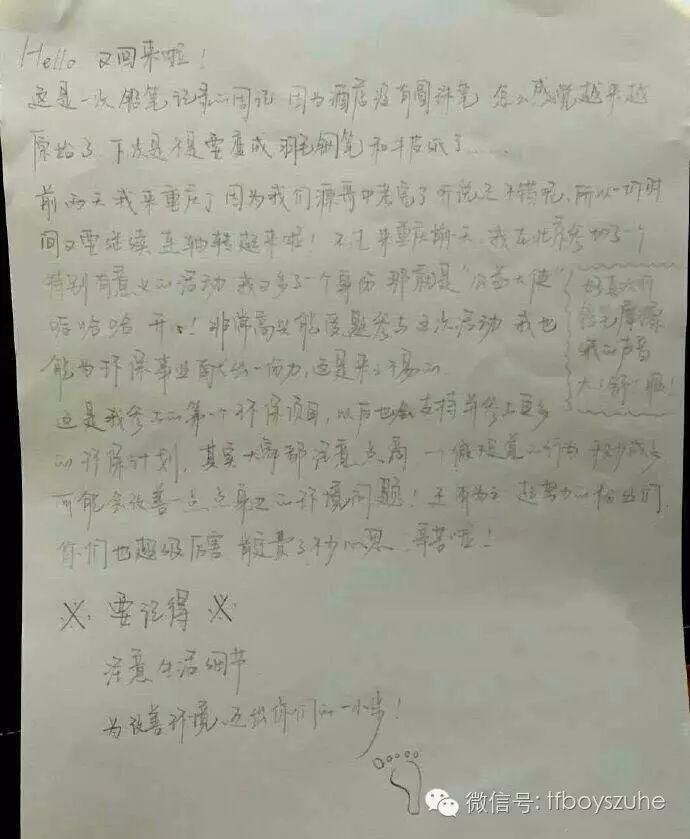 Hello 又回来啦！
这是一次铅笔记录的周记 因为酒店没有圆珠笔 怎么感觉越来越
原始了 下次是不是要变成羽毛钢笔和牛皮纸了......
前两天我来重庆了因为我们源哥中考完了听说还不错呢，所以一切时
间又要继续连轴转起来啦！不过来重庆前一天，我在北京参加了一个
特别有意义的活动 我又多了一个身份 那就是“公益大使”
哈哈哈 开心！非常高兴能受邀参与这次活动 我也
能为环保事业献出一份力，这是来之不易的
好喜欢听
铅笔摩擦
纸的声音
太舒服！
这是我参与的第一个环保项目，以后也会支持并参与更多
的环保计划，其实大家都注意点滴 一个微观着的行为 积少成多
可能会改善一点点身边的环境问题！还有为之超努力的粉丝们
你们也超级厉害 肯定费了不少心思，辛苦啦！
※ 要记得 ※
注意生活细节
为改善环境 迈出你们的一小步！
微信号: tfboyszuhe